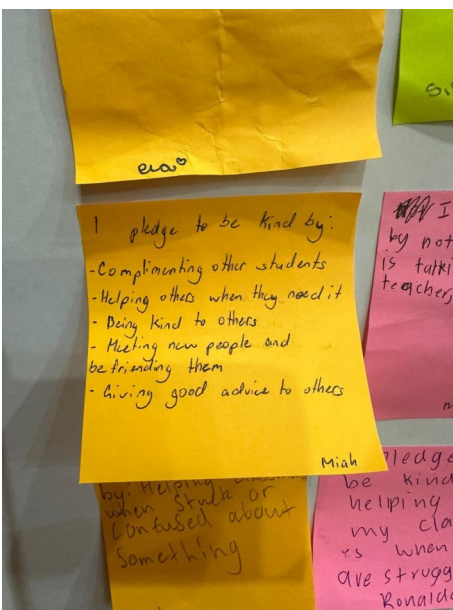 eva
I pledge to be kind by:
-Complimenting other students
-Helping others when they need it
- Being kind to others
- Meeting new people and
befriending them
- Giving good advice to others
Miah
by: Helping
when stuck or
confused about
something
I
by not
is talki
teacher,
pledge
be kind
helping
my cla
es when
are strugg
Ronaldo